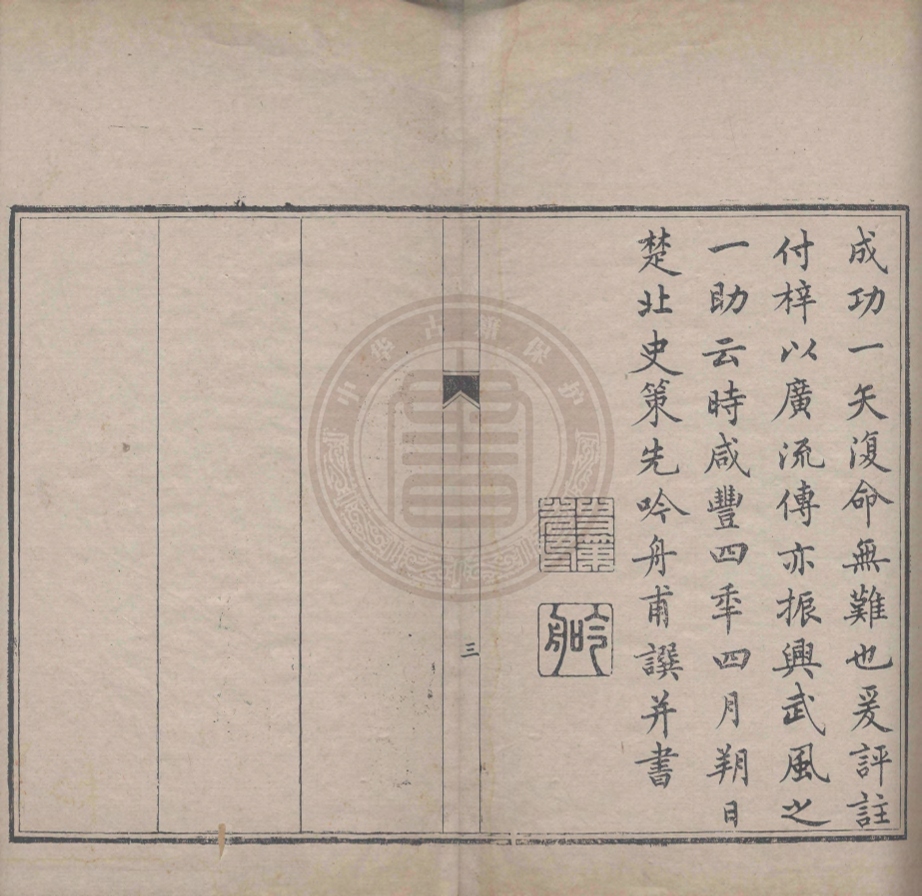 成功一矢復命無難也爰評註
付梓以廣流傳亦振興武風之
一助云時咸豐四秊四月朔日
楚北史策先吟舟甫譔并書
三
中华古籍保护